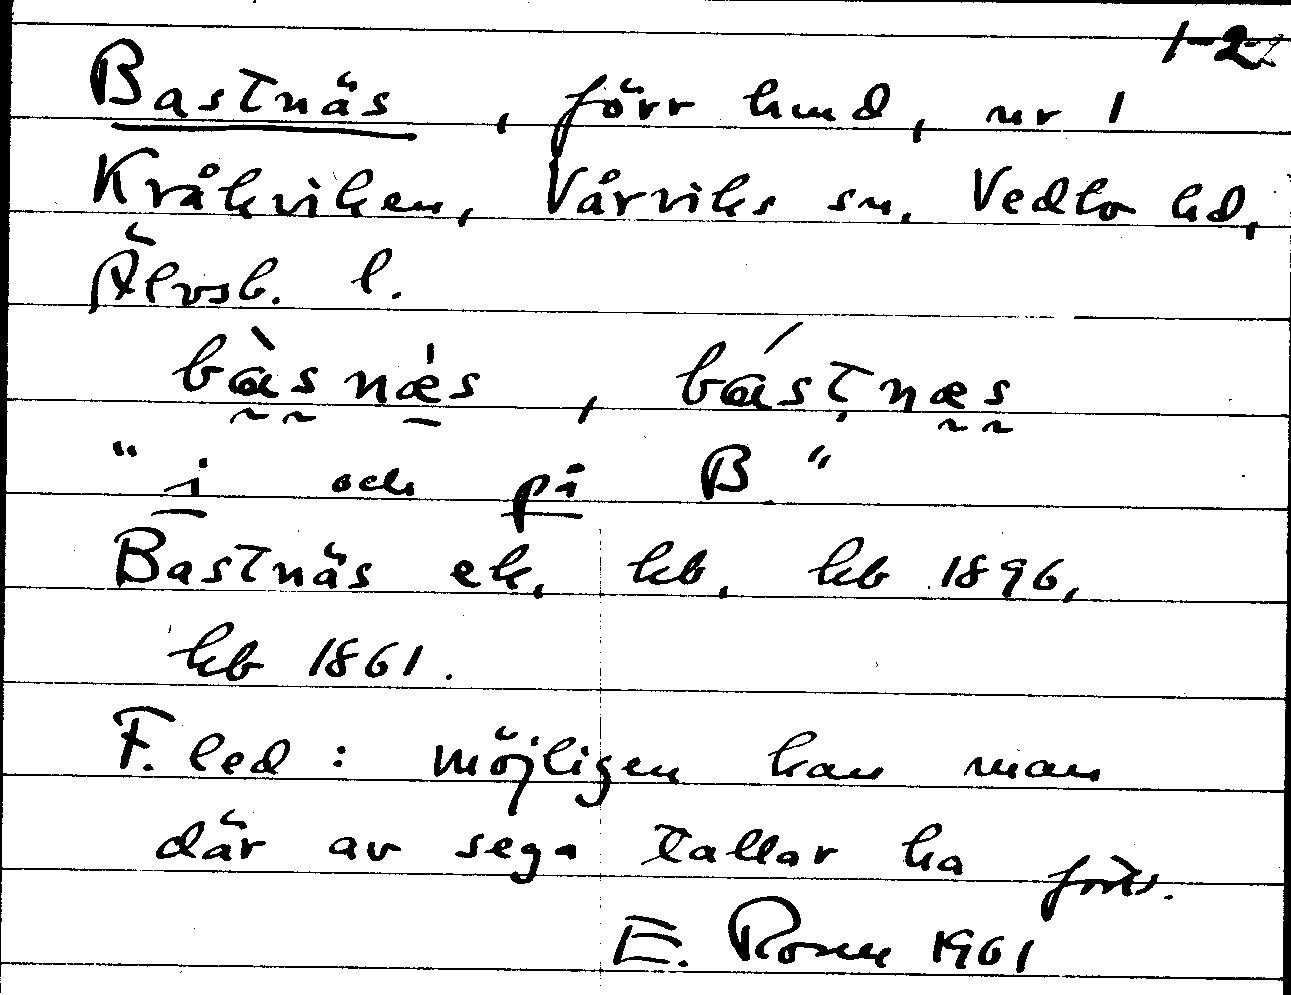 1-2
Bastnäs, förr hmd, nr 1
Kråkviken, Vårviks sn, Vedbo hd,
Älvsb. l.
bàsnæ̀s, bástnæs
"i och på B."
Bastnäs ek, kb, kb 1896,
kb 1861.
F. led: möjligen kan man
där av sega tallar ha forts.
E. Rosén 1961